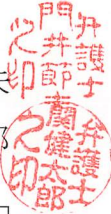 弁護士
門井節
夫之印
弁護士
蘭健太郎
之印
夫